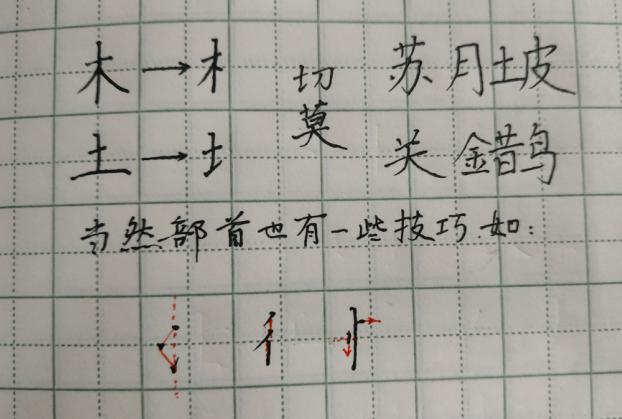 木→木 切 苏 月土皮
土→土 莫 关 金昔鸟
当然部首也有一些技巧.如:
氵 亻 忄